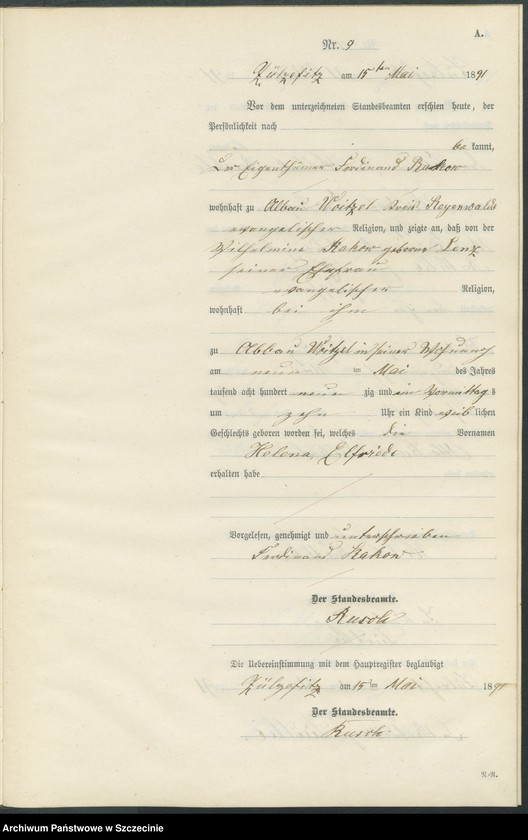 A.
Nr. 9
Zülzefitz am 15ten Mai 1891
Vor dem unterzeichneten Standesbeamten erschien heute, der
Persönlichkeit nach
bekannt,
der Eigenthümer Ferdinand Rakow
wohnhaft zu Abbau Woitzel Kreis Regenwalde
evangelischer Religion, und zeigte an, daß von der
Wilhelmine Rakow geborne Lenz
seiner Ehefrau
evangelischer Religion,
wohnhaft bei ihm
zu Abbau Woitzel in seiner Wohnung
am neunten Mai des Jahres
tausend acht hundert neunzig und ein Vormittags
um zehn Uhr ein Kind weiblichen
Geschlechts geboren worden sei, welches die Vornamen
Helena, Elfriede
erhalten habe
Vorgelesen, genehmigt und unterschrieben
Ferdinand Rakow
Der Standesbeamte.
Rusch
Die Uebereinstimmung mit dem Hauptregister beglaubigt
Zülzefitz am 15ten Mai 1891
Der Standesbeamte.
Rusch
Archiwum Państwowe w Szczecinie